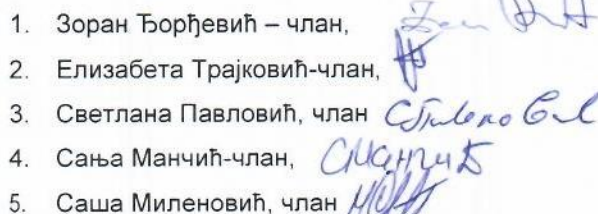 1. Зоран Ђорђевић – члан,
2. Елизабета Трајковић-члан,
3. Светлана Павловић, члан
4. Сања Манчић-члан, СМанчић
5. Саша Миленовић, члан